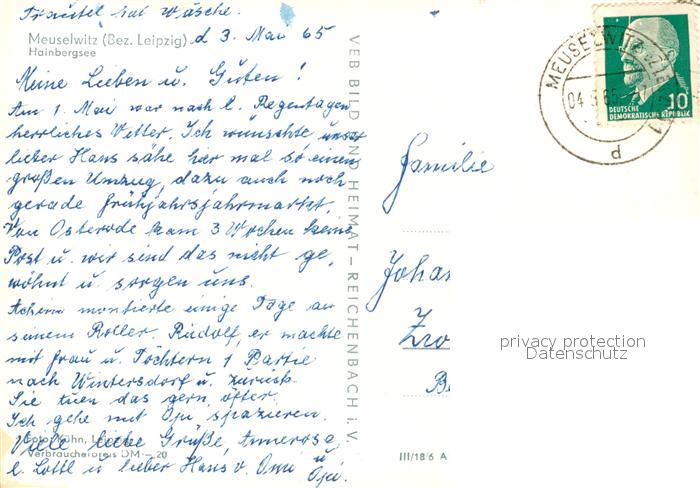 Trautel hat Wäsche.
Meuselwitz (Bez. Leipzig) d 3. Mai 65
Hainbergsee
Meine Lieben u. Guten!
Am 1. Mai war nach l. Regentagen
herrliches Wetter. Ich wünschte unser
lieber Hans sähe hier mal so einen
großen Umzug, dazu auch noch
gerade Frühjahrsjahrmarkt.
Von Osterode kam 3 Wochen keine
Post u. wir sind das nicht ge,
wöhnt u. sorgen uns.
Achim montierte einige Tage an
seinem Roller. Rudolf, er machte
mit Frau u. Töchtern 1 Partie
nach Wintersdorf u. zurück.
Sie tuen das gern öfter.
Ich gehe mit Opi spazieren.
Viele liebe Grüße, Annerosa,
l. Lottl u lieber Hans v. Omi u Opi.
Foto: Kühn, Leipzig
Verbraucherpreis DM -.20
VEB BILD UND HEIMAT - REICHENBACH i. V.
III/18/6 A
Familie
Johan
Zro
MEUSELWITZ
04.5.65
d
10
DEUTSCHE
DEMOKRATISCHE REPUBLIK
privacy protection
Datenschutz